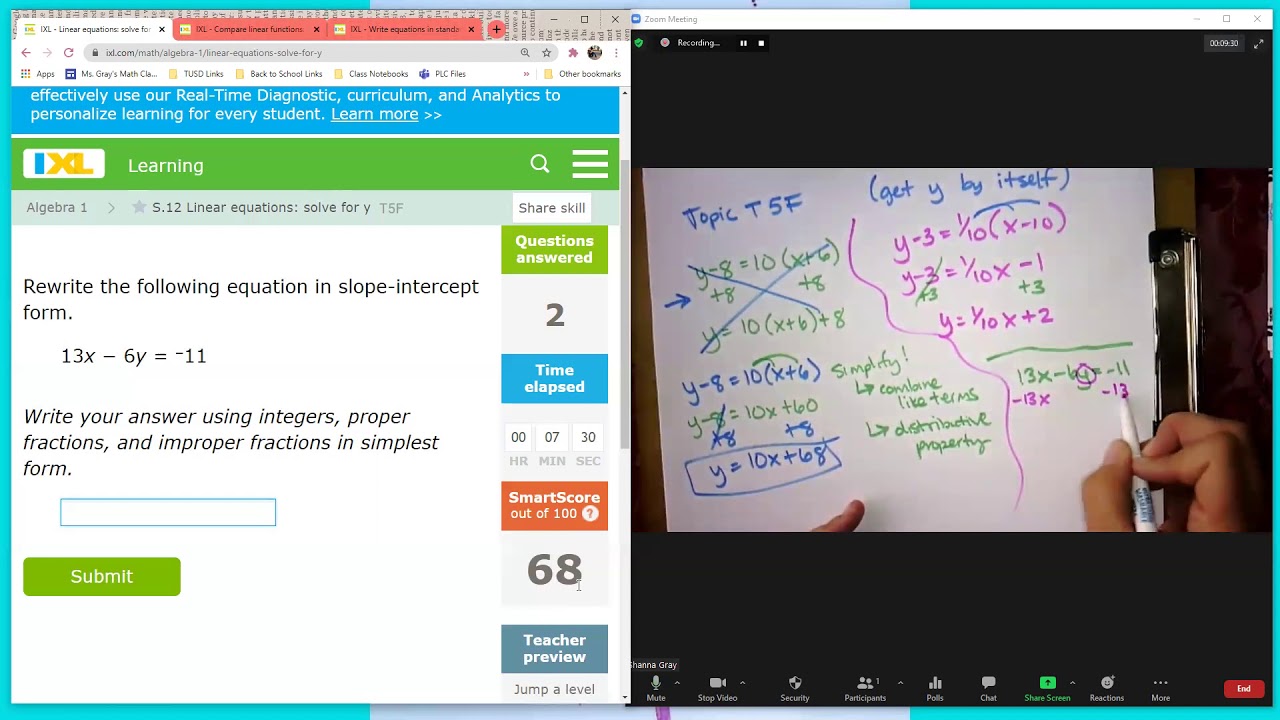 IXL - Linear equations: solve for
IXL - Compare linear functions:
IXL - Write equations in standa
ixl.com/math/algebra-1/linear-equations-solve-for-y
Apps
Ms. Gray's Math Cla...
TUSD Links
Back to School Links
Class Notebooks
PLC Files
»
Other bookmarks
effectively use our Real-Time Diagnostic, curriculum, and Analytics to
personalize learning for every student. Learn more >>
IXL
Learning
Algebra 1 > S.12 Linear equations: solve for y T5F
Share skill
Rewrite the following equation in slope-intercept
form.
13x − 6y = ⁻11
Write your answer using integers, proper
fractions, and improper fractions in simplest
form.
Submit
Questions
answered
2
Time
elapsed
00 07 30
HR MIN SEC
SmartScore
out of 100 ?
68
Teacher
preview
Jump a level
Zoom Meeting
Recording...
00:09:30
Topic T5F
(get y by itself)
y-8 = 10(x+6)
+8 +8
y = 10(x+6)+8
y-8 = 10(x+6)
y-8 = 10x+60
+8 +8
y = 10x+68
Simplify!
↳ combine
like terms
↳ distributive
property
y-3 = 1/10(x-10)
y-3 = 1/10x -1
+3 +3
y = 1/10x + 2
13x-6y = -11
-13x -13
Shanna Gray
Mute
Stop Video
Security
Participants
1
Polls
Chat
Share Screen
Reactions
More
End